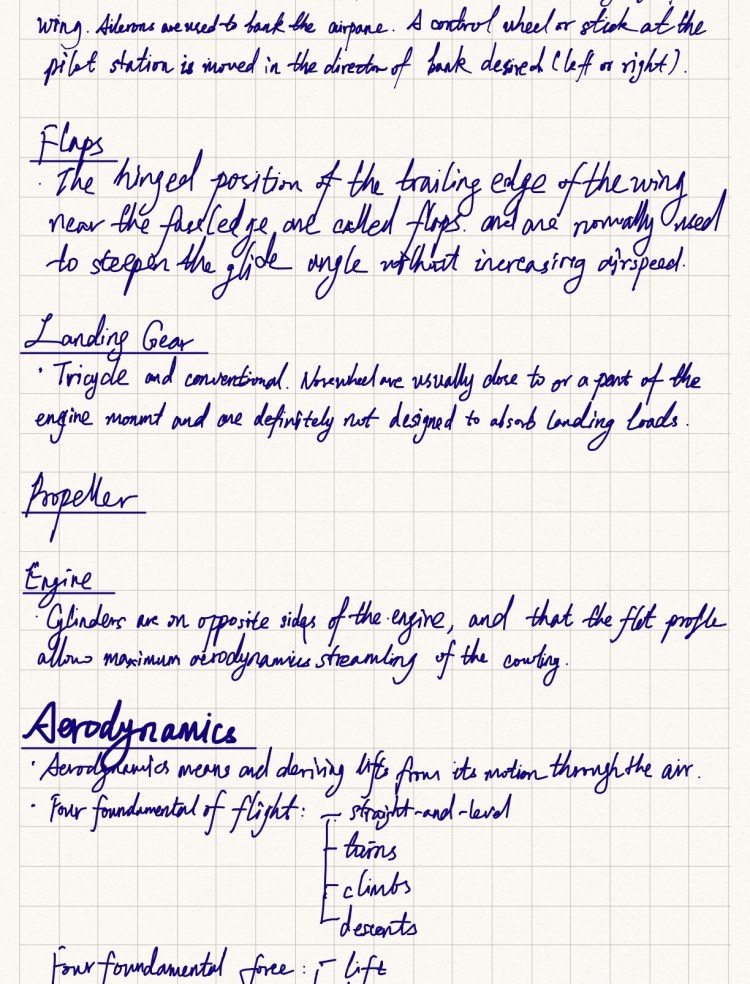 wing. Ailerons are used to bank the airpane. A control wheel or stick at the
pilot station is moved in the direction of bank desired (left or right).
Flaps
· The hinged position of the trailing edge of the wing
near the fuseledge are called flaps. and are normally used
to steepen the glide angle without increasing airspeed.
Landing Gear
· Tricycle and conventional. Nosewheel are usually close to or a part of the
engine mounmt and are definitely not designed to absorb landing loads.
Propeller
Engine
· Cylinders are on opposite sides of the engine, and that the flat profle
allows maximum aerodynamics streamling of the cowling.
Aerodynamics
· Aerodynamics means and deriving lifts from its motion through the air.
· Four foundamental of flight: - straight-and-level
- turns
- climbs
- descents
Four foundamental force: - lift